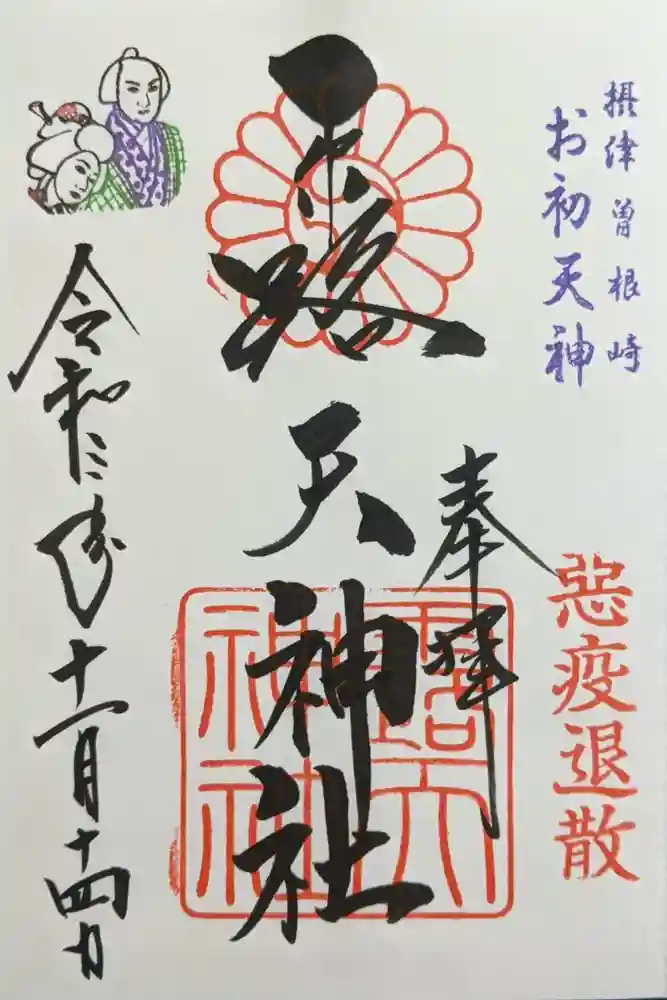 摂津曽根崎
お初天神
悪疫退散
奉拝
露天神社
露天神社
令和二年十一月十四日